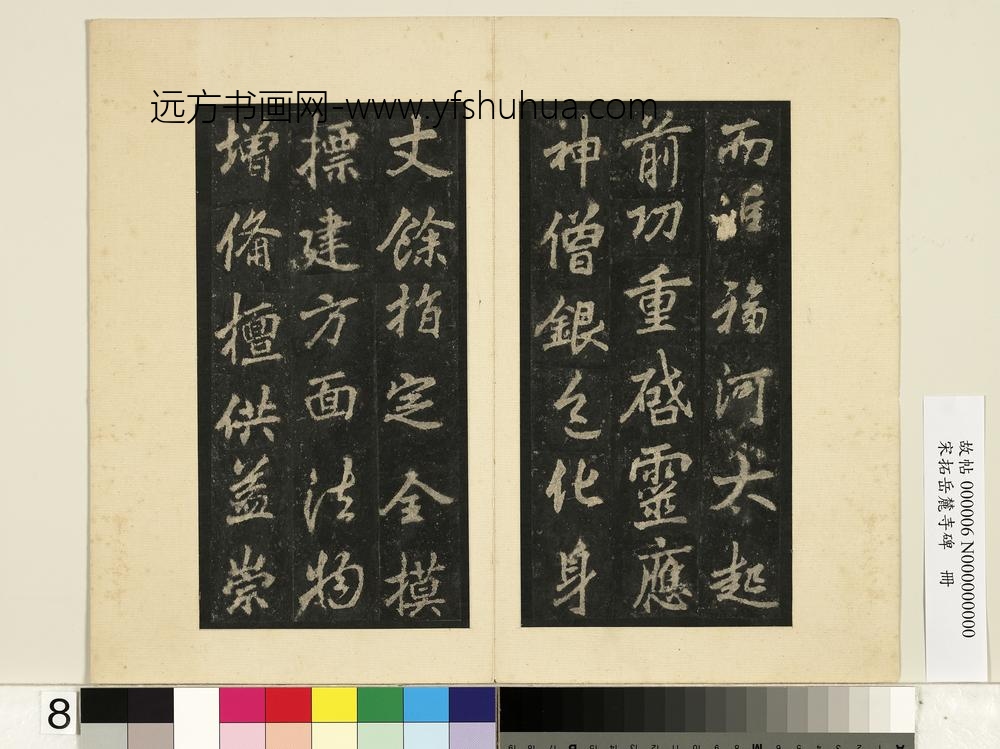 远方书画网-www.yfshuhua.com
而誰福河太起
前功重啓靈應
神僧銀色化身
丈餘指定全摸
標建方面法物
增備檀供益崇
故帖 000006 N000000000
宋拓岳麓寺碑 冊
8